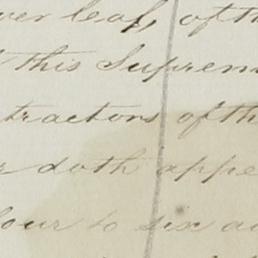 ver leaf, of th
this Suprem
tractors of th
doth appe
four to six a